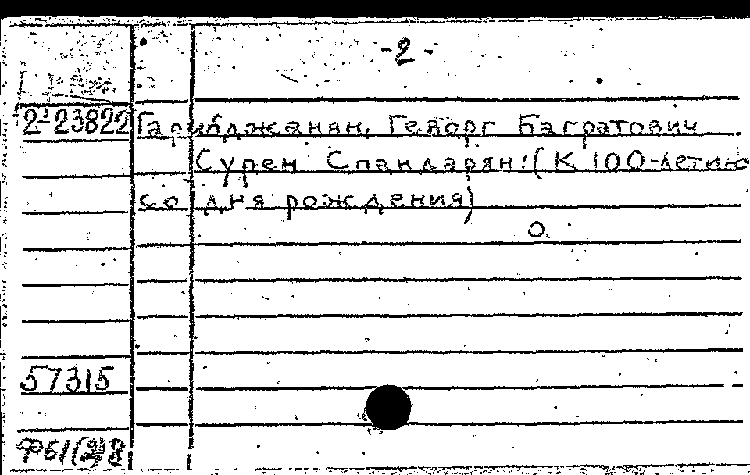 -2-
2-23822 Гарибджанян, Геворг Багратович
Сурен Спандарян: (К 100-летию
со дня рождения)
57315